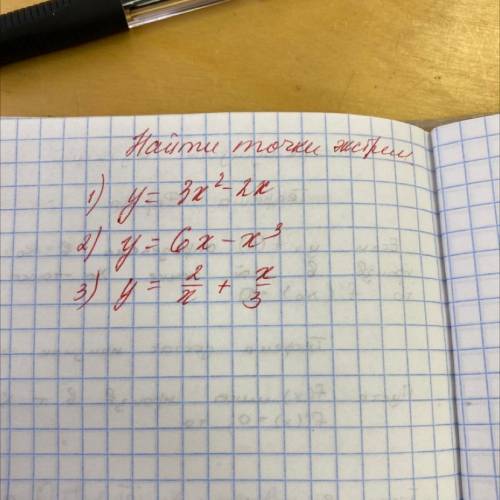 Найти точки экстрем
1) y = 3x² - 2x
2) y = 6x - x³
3) y = 2/x + x/3